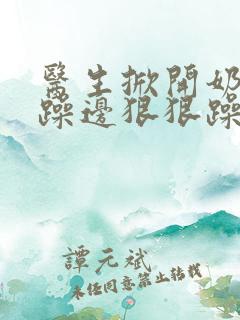 醫生掀開奶
躁邊狠狠躁
譚元斌
未經同意禁止轉載